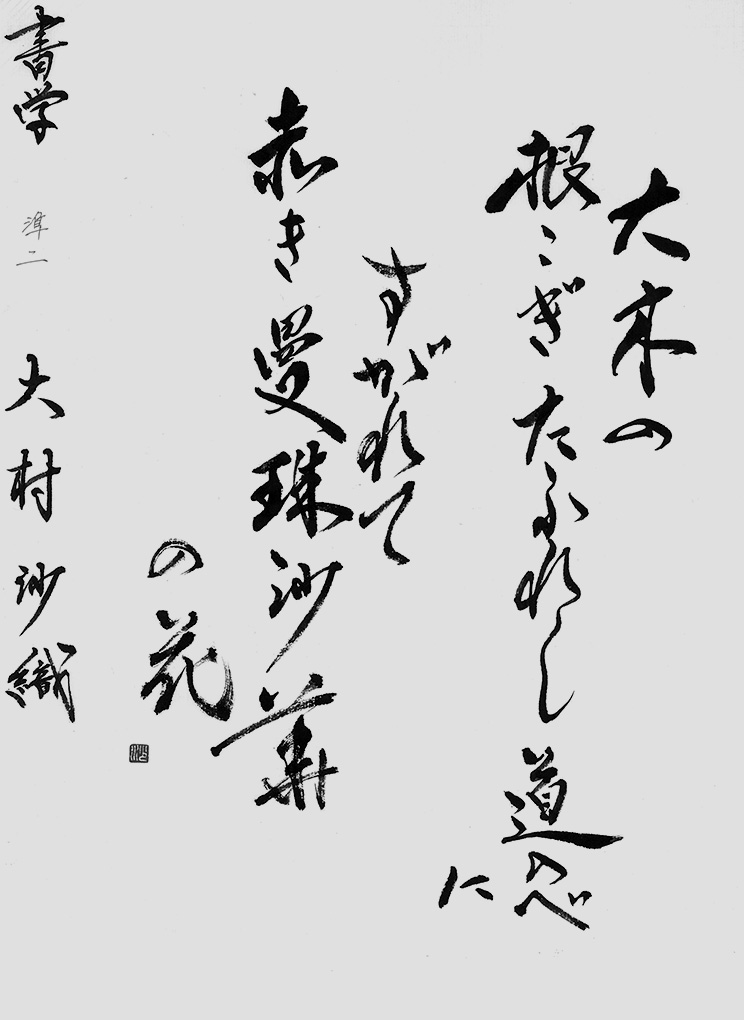 大木の
根こぎたふれし道のべ
に
すがれて
赤き曼珠沙華
の花
書学
準二
大村沙織